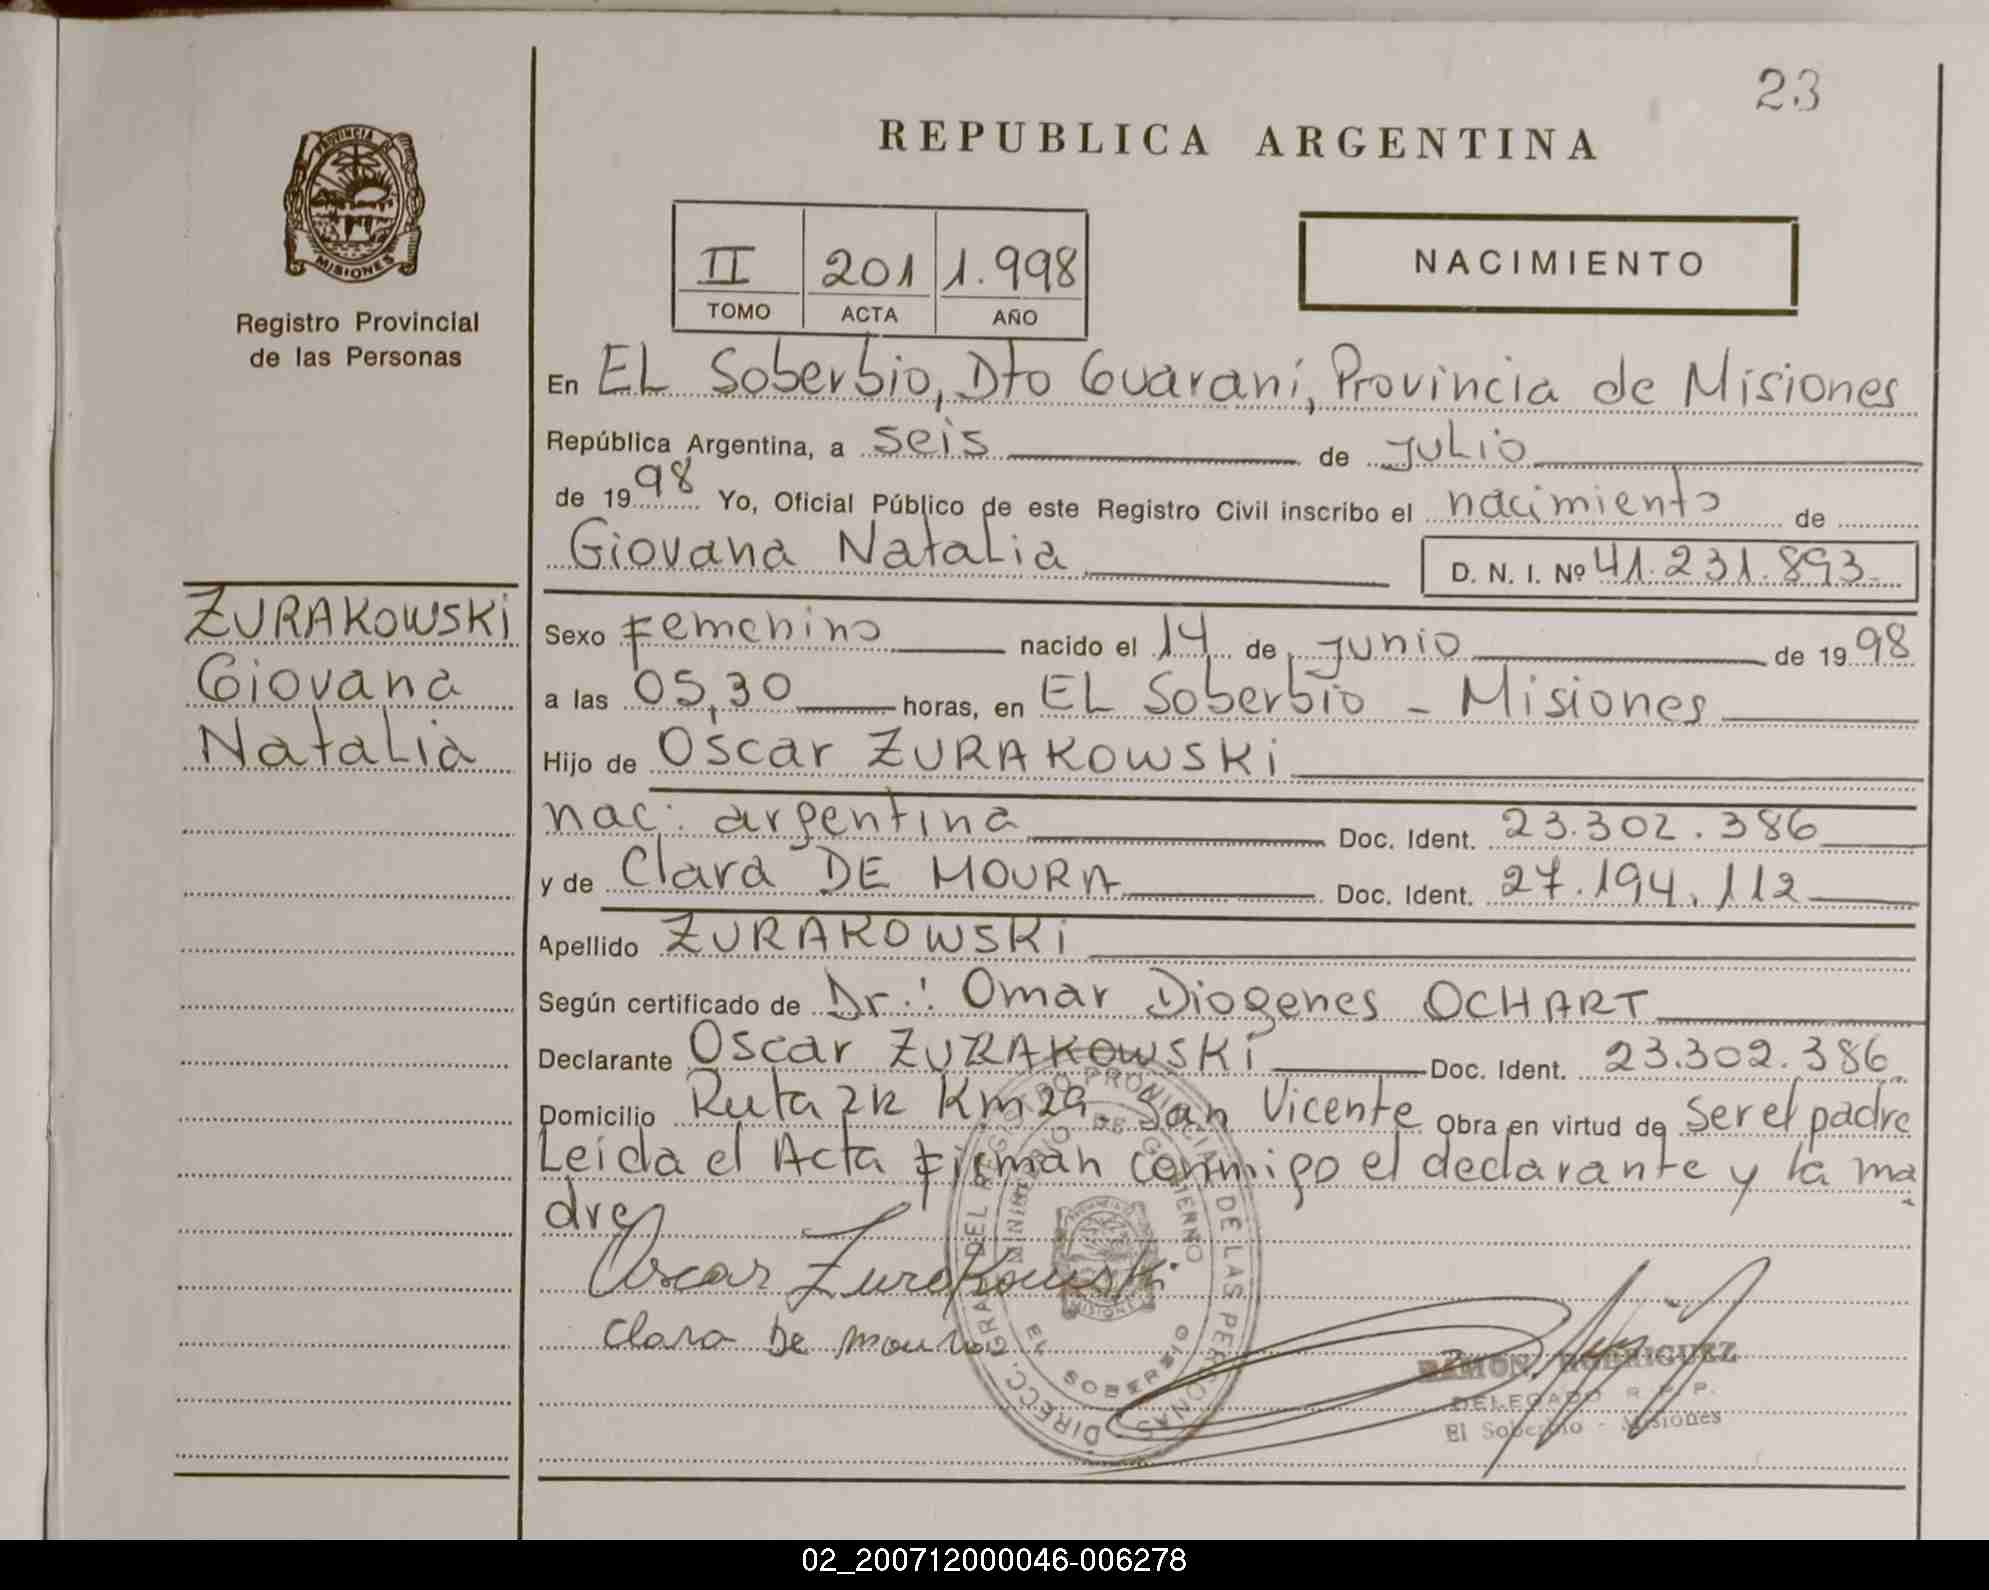 23
REPUBLICA ARGENTINA
PROVINCIA DE
MISIONES
Registro Provincial
de las Personas
II 201 1.998
TOMO ACTA AÑO
NACIMIENTO
En EL Soberbio, Dto Guaraní, Provincia de Misiones
República Argentina, a seis de Julio
de 1998 Yo, Oficial Público de este Registro Civil inscribo el nacimiento de
Giovana Natalia D. N. I. Nº 41.231.893.
ZURAKOWSKi
Giovana
Natalia
Sexo Femenino nacido el 14 de Junio de 1998
a las 05,30 horas, en EL Soberbio - Misiones
Hijo de Oscar ZURAKOWSKi
nac: argentina Doc. Ident. 23.302.386
y de Clara DE MOURA Doc. Ident. 27.194.112
Apellido ZURAKOWSKi
Según certificado de Dr.: Omar Diogenes OCHART
Declarante Oscar ZURAKOWSKi Doc. Ident. 23.302.386
Domicilio Ruta 212 Km 29. San Vicente Obra en virtud de Ser el padre
Leída el Acta Firman conmigo el declarante y la ma
dre
Oscar Zurakowski
Clara De Moura
DIRECC. GRAL. DEL REGISTRO PROVINCIAL DE LAS PERSONAS
MINISTERIO DE GOBIERNO
MISIONES
EL SOBERBIO
RAMON RODRIGUEZ
DELEGADO R. P. P.
El Soberbio - Misiones
02_200712000046-006278